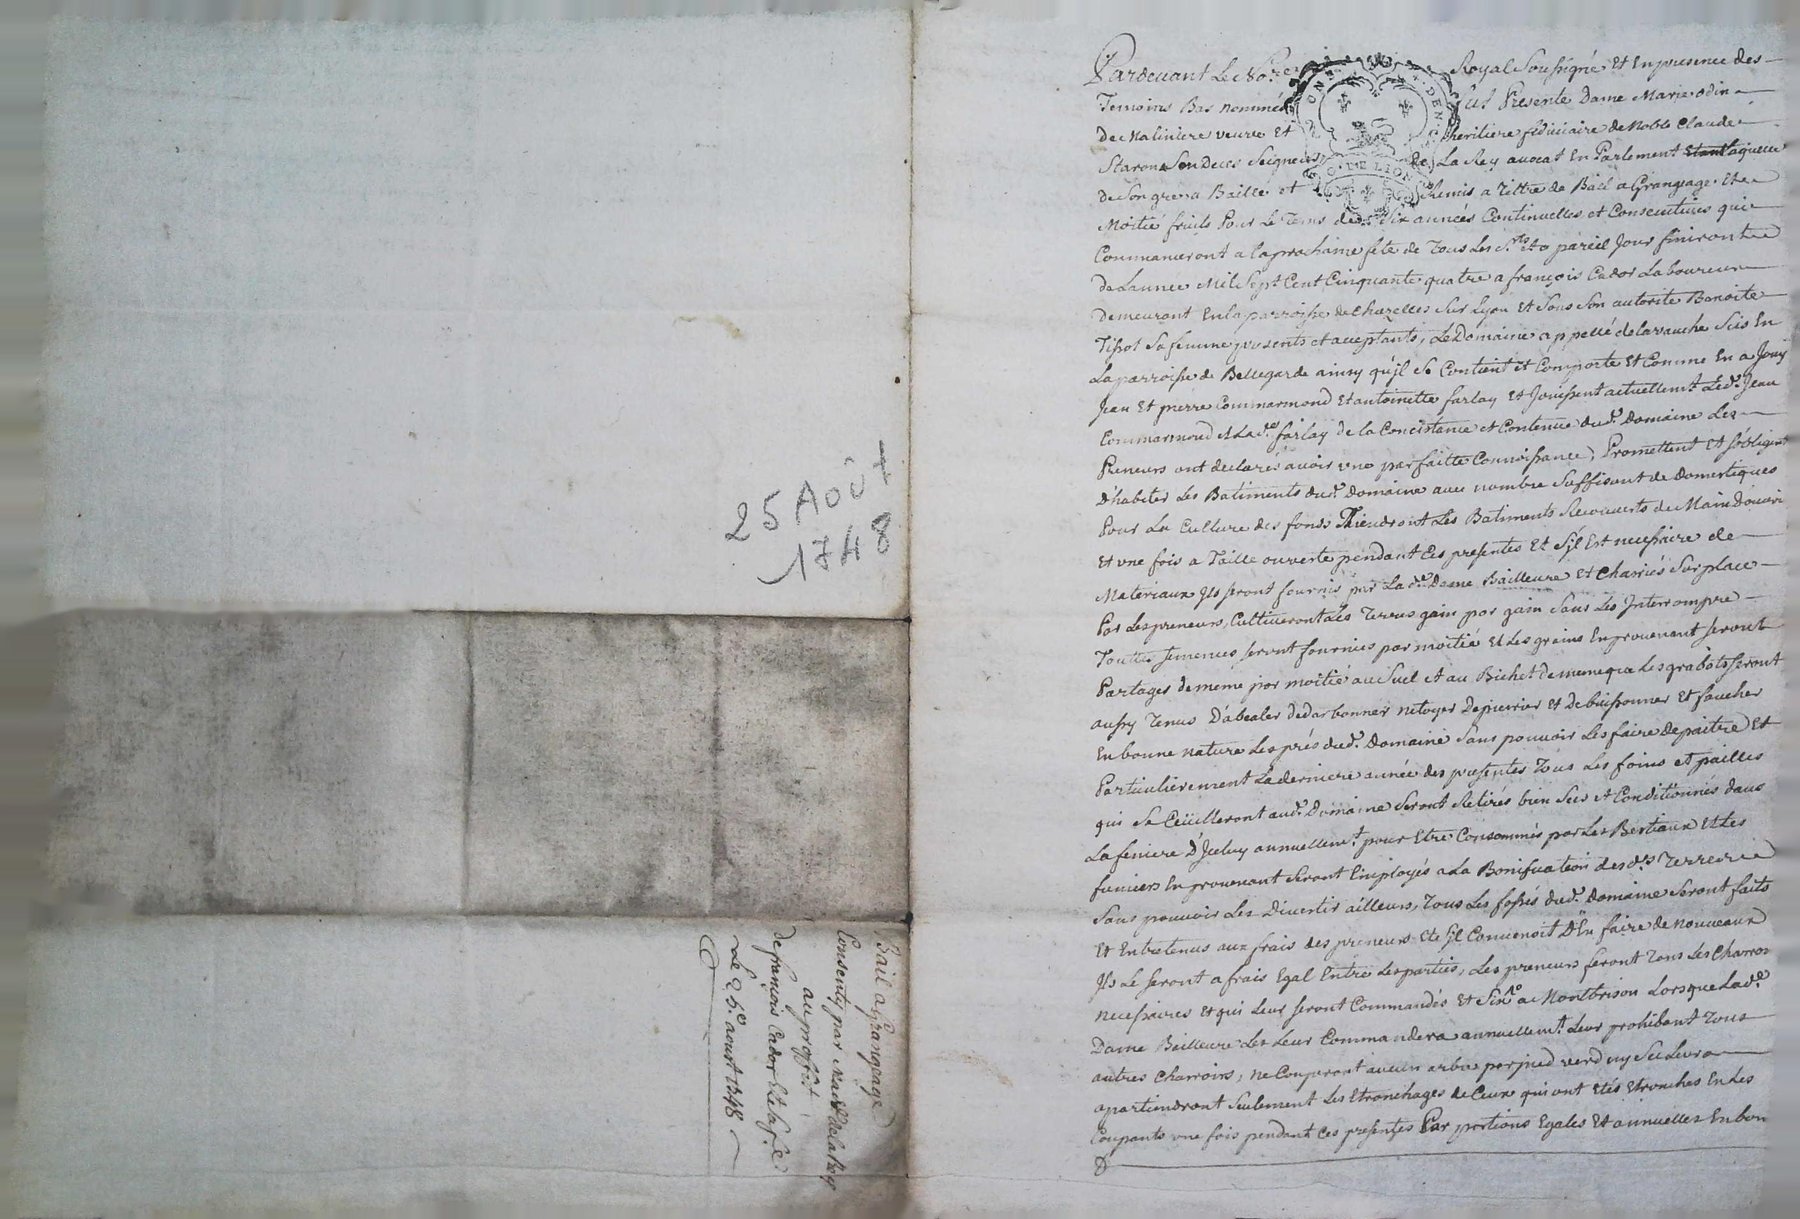 25 Aout
1748
Bail a Grangeage
Consenty par Mad.e de la Rey
au proffit
de françois Cador Et sa fe
Le 25e aoust 1748
Pardevant Le No.re Royal Soussigné Et En presence des
Temoins Bas nommés fut Presente Dame Marie odin
de Maliniere veuve Et heritiere fiduciaire de Noble Claude
Staron Son Deces Seigneur de La Rey avocat En Parlement Laquelle
de Son gré a Baillé et Remis a Tittre de Bail a Grangeage Et
Moitié fruits Pour Le Tems de Six années Continuelles et Consecutives qui
Commanceront a la prochaine fete de Tous Les S.ts Et a pareil Jour finiront
de Lannee Mil Sept Cent Cinquante quatre a françois Cador Laboureur
demeurant En la parroisse de Chazelles Sur Lyon Et Sous Son autorité Benoite
Tissot Sa femme presents et acceptants, Le Domaine appellé de la vauche Scis En
La parroisse de Bellegarde ainsy qu'il Se Contient et Comporte Et Comme En a Jouy
Jean Et pierre Commarmond Et antoinette farlay Et Jouissent actuellem.t Led.t Jean
Commarmond et Lad.e farlay de la Concistance et Contenue dud.t Domaine Les
Preneurs ont declarés avoir une parfaitte Connoissance, Promettent Et s'obligent
d'habiter Les Batiments dud.t Domaine avec nombre Suffisant de Domestiques
Pour La Culture des fonds Tiendront Les Batiments Recouverts de Main Douvrier
Et une fois a Taille ouverte pendant Ces presentes Et S'il Est necessaire de
Materiaux Ils seront fournis par La d.e Dame Bailleure Et Charriés Sur place
Par Les preneurs, Cultiveront Les Terres gain par gain Sans Les Interrompre
Touttes semences seront fournies par moitié Et Les grains En provenant seront
Partagés de meme par moitié au Suel et au Bichet de meme que Les grabots Seront
aussy Tenus D'abealer dedarbonner netoyer Depierrer Et Debuissonner Et faucher
En bonne nature Les prés dud.t Domaine Sans pouvoir Les faire Depaitre Et
Particulierement La derniere année des presentes Tous Les foins et pailles
qui Se Ceuilleront aud.t Domaine Seront Retirés bien Secs et Conditionnés dans
La feniere D'Iceluy annuellem.t pour Etre Consommés par Les Bestiaux Et Les
fumiers En provenant Seront Employés a La Bonification des d.s Terres
Sans pouvoir Les Divertir ailleurs, Tous Les fossés dud.t Domaine Seront faits
Et Entretenus aux frais des preneurs Et S'il Convenoit D'En faire de nouveaux
Ils Le seront a frais Egal Entre Les parties, Les preneurs feront Tous Les Charrois
necessaires Et qui Leur seront Commandés Et a Montbrison Lorsque Lad.e
Dame Bailleure Les Leur Commandera annuellem.t Leur prohibant Tous
autres Charroirs, ne Couperont aucun arbre par pied verd ny Sec Leur
apartiendront Seulement Les Etronchages de Ceux qui ont Etés Etronches En Les
Coupants une fois pendant Ces presentes Par portions Egales Et annuelles En bon